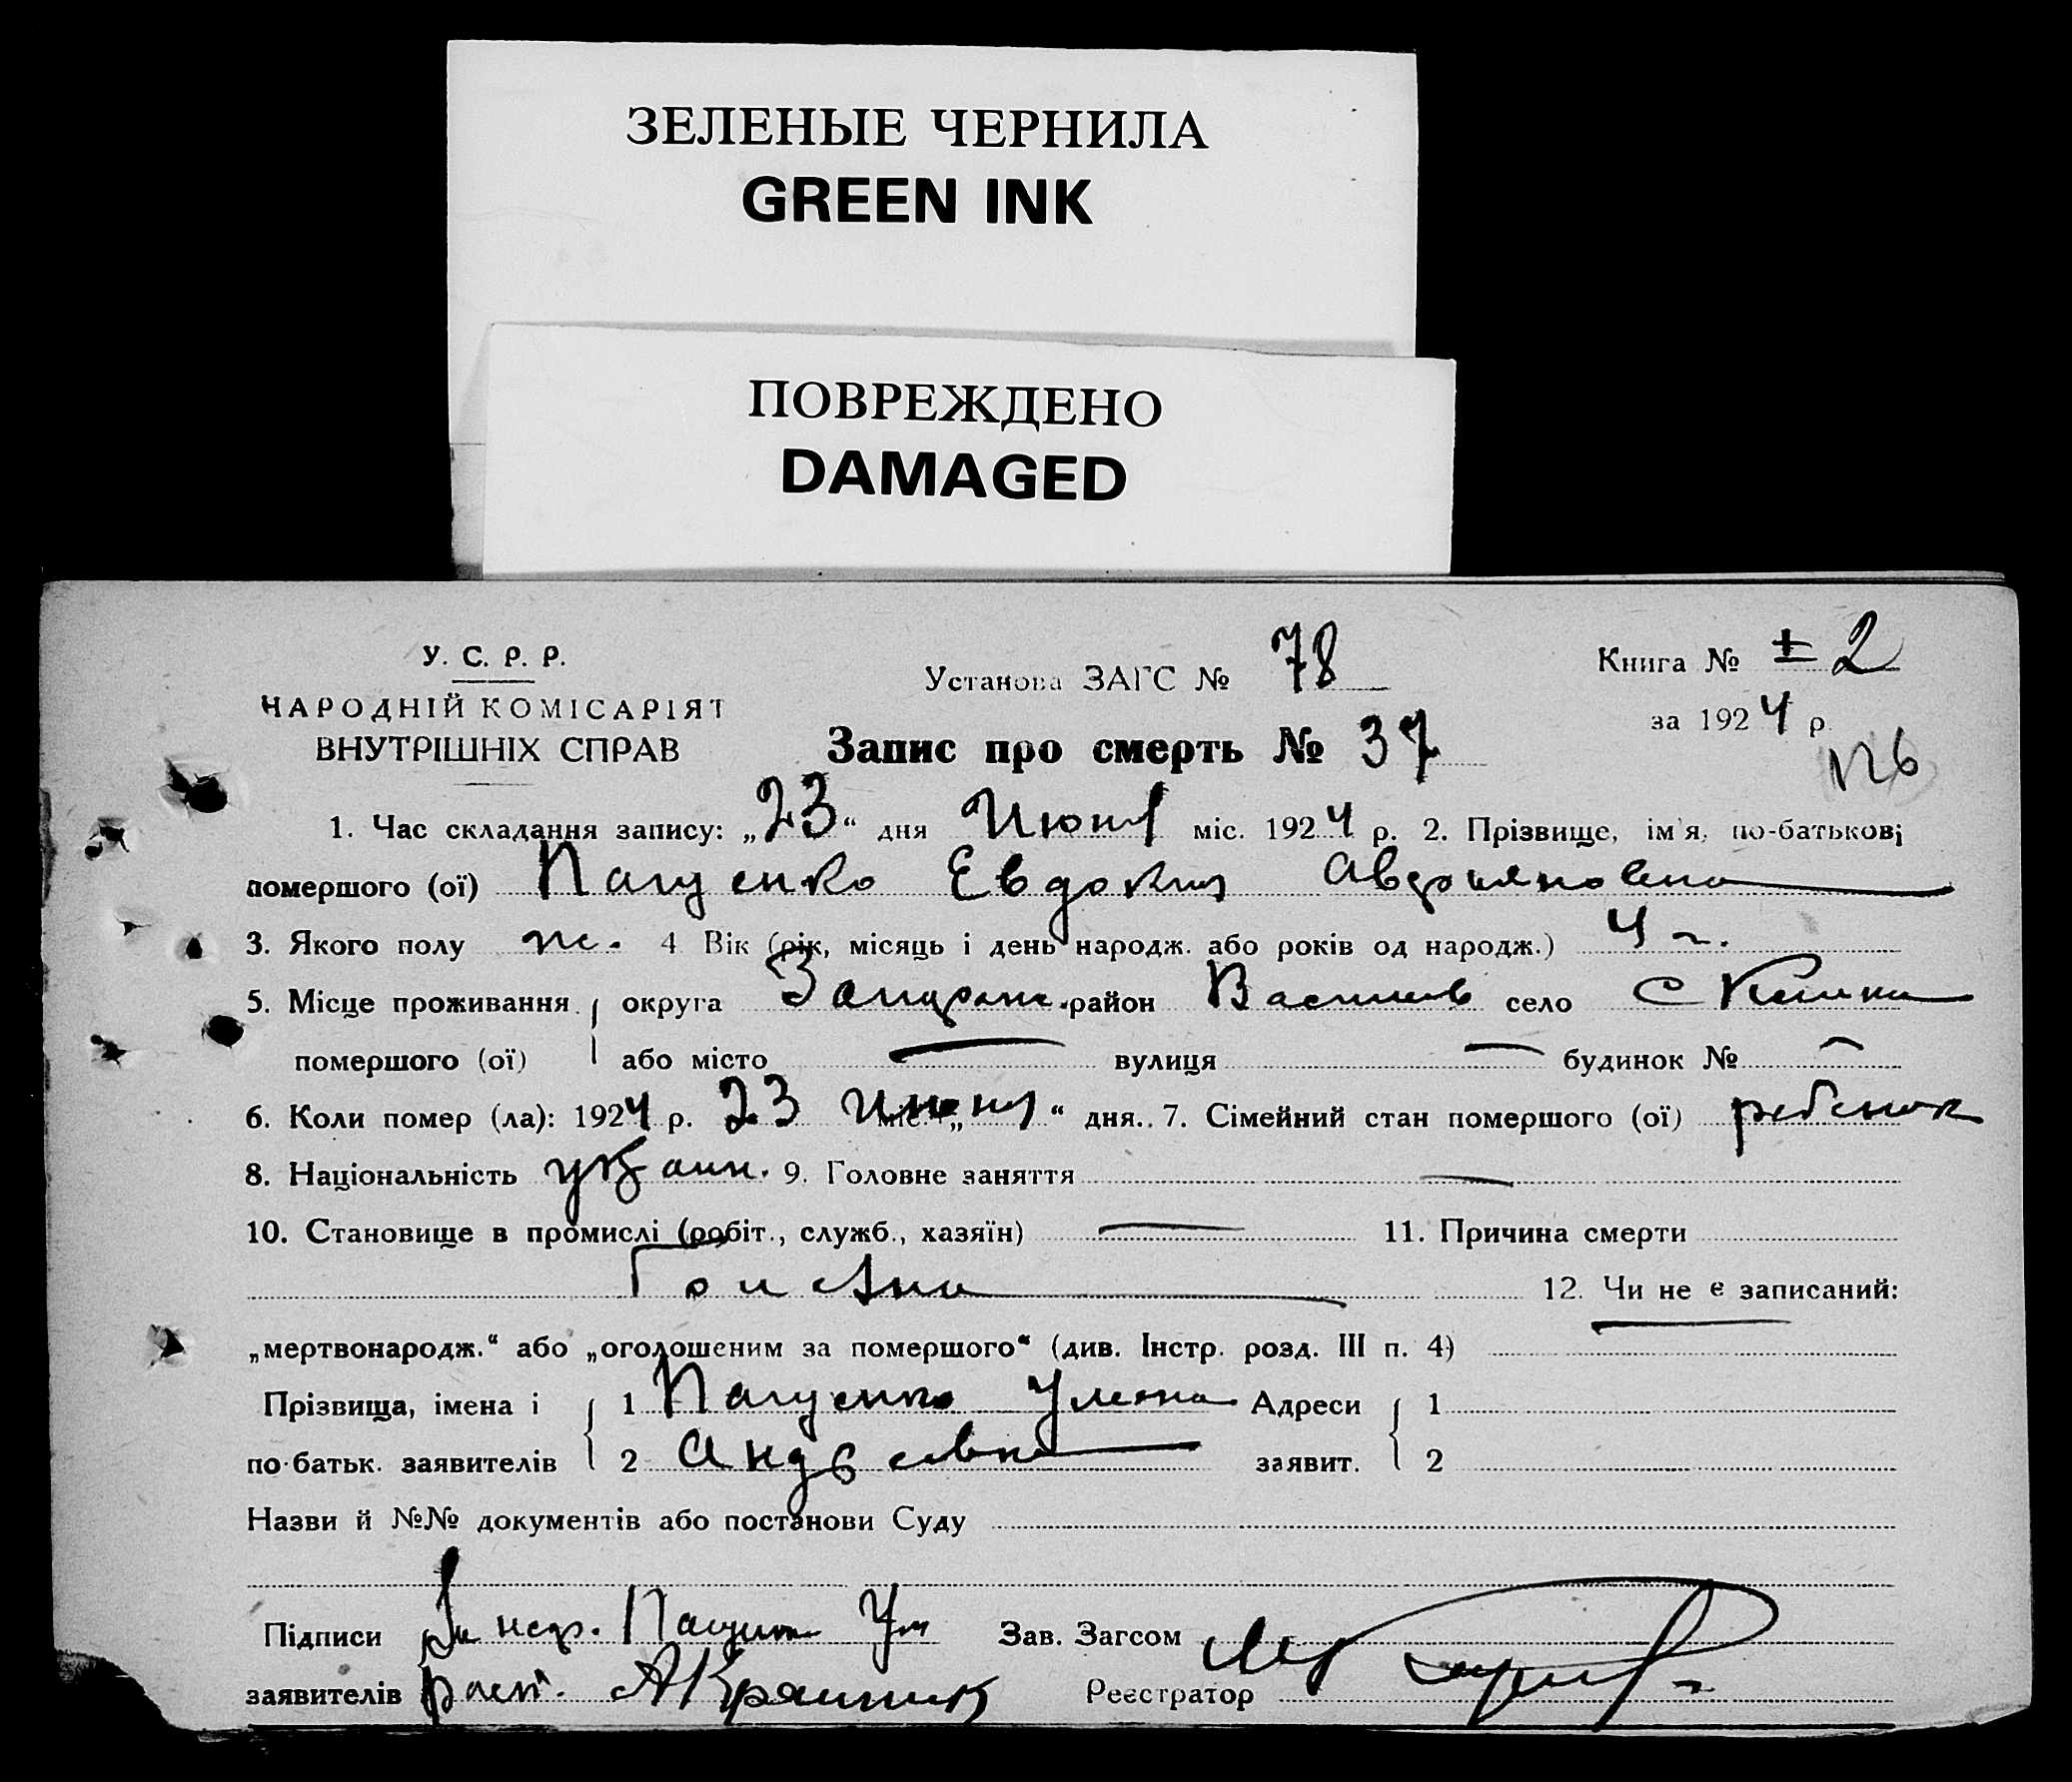 ЗЕЛЕНЫЕ ЧЕРНИЛА
GREEN INK
ПОВРЕЖДЕНО
DAMAGED
У. С. Р. Р.
НАРОДНІЙ КОМІСАРІЯТ
ВНУТРІШНІХ СПРАВ
Установа ЗАГС № 78
Книга № 2
за 1924 р.
126
Запис про смерть № 37
1. Час складання запису: „23“ дня Июня міс. 1924 р. 2. Прізвище, ім'я, по-батькові
помершого (ої) Пащенко Евдокия Авдрияновна
3. Якого полу ж. 4 Вік (рік, місяць і день народж. або років од народж.) 4 г.
5. Місце проживання округа Запорож. район Васильев село с
помершого (ої) або місто — вулиця — будинок № —
6. Коли помер (ла): 1924 р. 23 Июня міс. „ “ дня. 7. Сімейний стан помершого (ої) ребенок
8. Національність украин. 9. Головне заняття —
10. Становище в промислі (робіт., служб., хазяїн) — 11. Причина смерти
12. Чи не є записаний:
„мертвонародж.“ або „оголошеним за помершого“ (див. Інстр. розд. III п. 4)
Прізвища, імена і 1 Пащенко Ульяна Адреси 1
по-батьк. заявителів 2 Андреевна заявит. 2
Назви й №№ документів або постанови Суду
Підписи За негр. Пащенко Ул Зав. Загсом
заявителів расп. Реєстратор